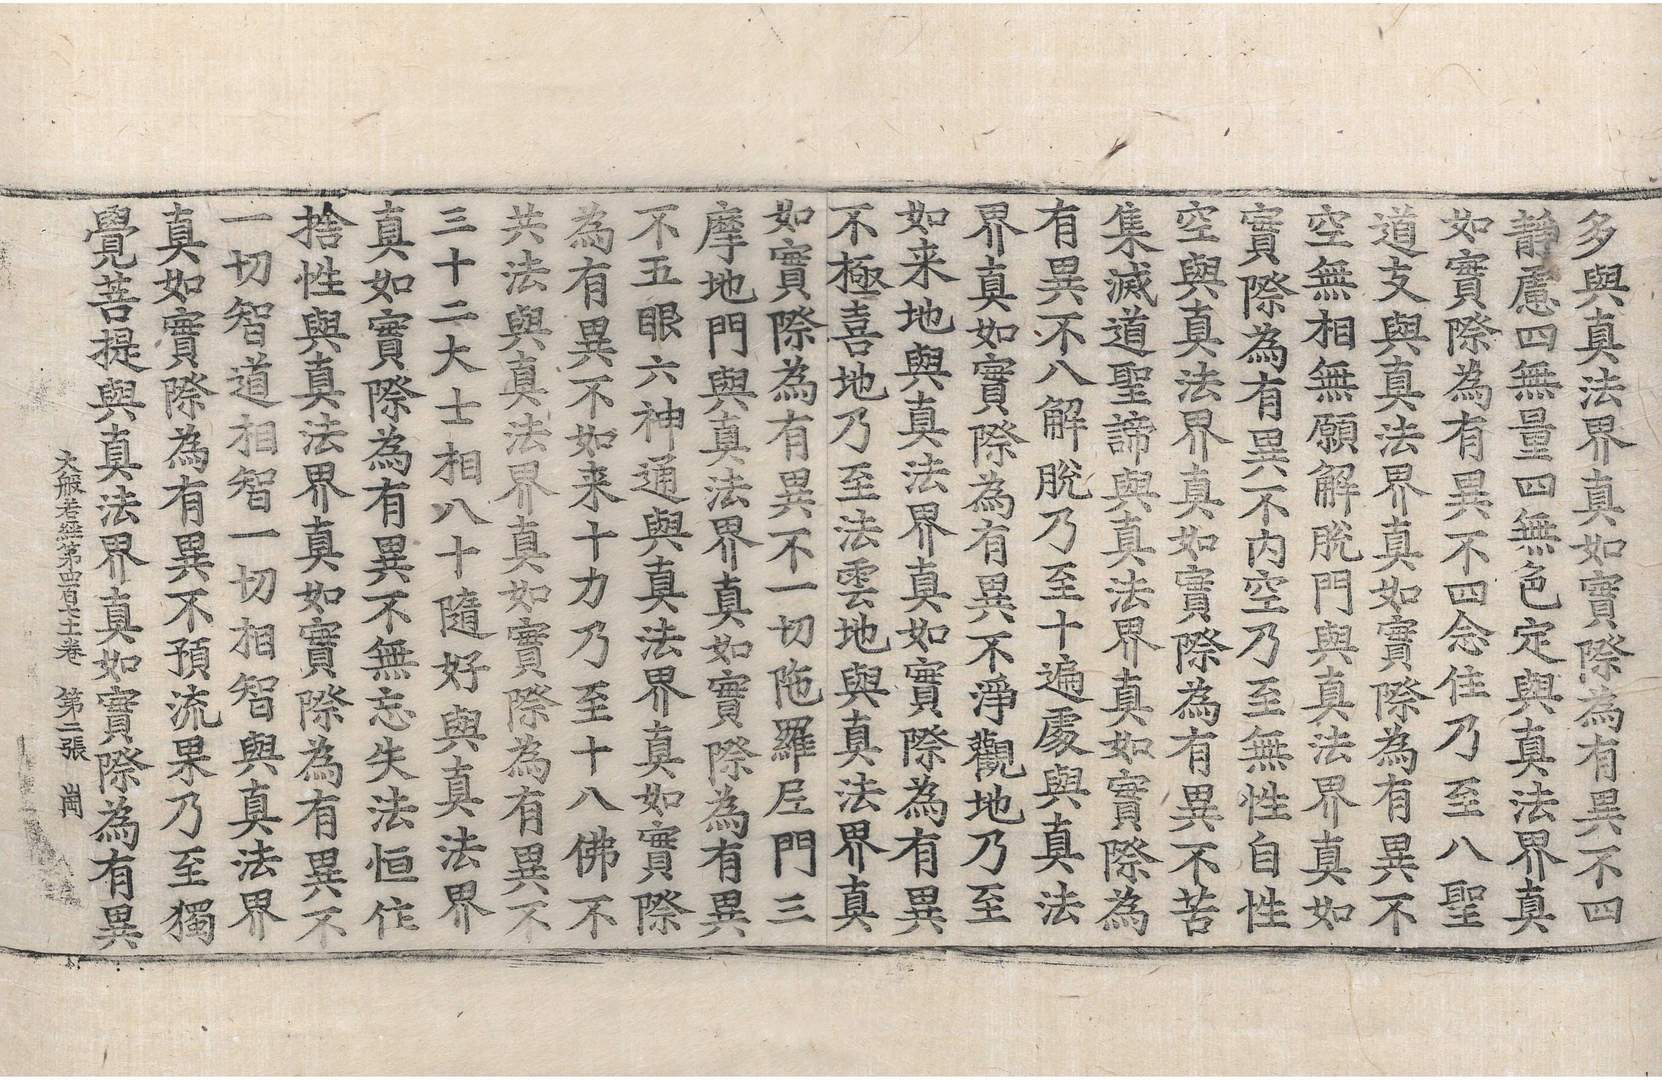 多與真法界真如實際為有異不四
靜慮四無量四無色定與真法界真
如實際為有異不四念住乃至八聖
道支與真法界真如實際為有異不
空無相無願解脫門與真法界真如
實際為有異不內空乃至無性自性
空與真法界真如實際為有異不苦
集滅道聖諦與真法界真如實際為
有異不八解脫乃至十遍處與真法
界真如實際為有異不淨觀地乃至
如来地與真法界真如實際為有異
不極喜地乃至法雲地與真法界真
如實際為有異不一切陁羅尼門三
摩地門與真法界真如實際為有異
不五眼六神通與真法界真如實際
為有異不如来十力乃至十八佛不
共法與真法界真如實際為有異不
三十二大士相八十隨好與真法界
真如實際為有異不無忘失法恒住
捨性與真法界真如實際為有異不
一切智道相智一切相智與真法界
真如實際為有異不預流果乃至獨
覺菩提與真法界真如實際為有異
大般若經第四百七十二卷 第二張 崗